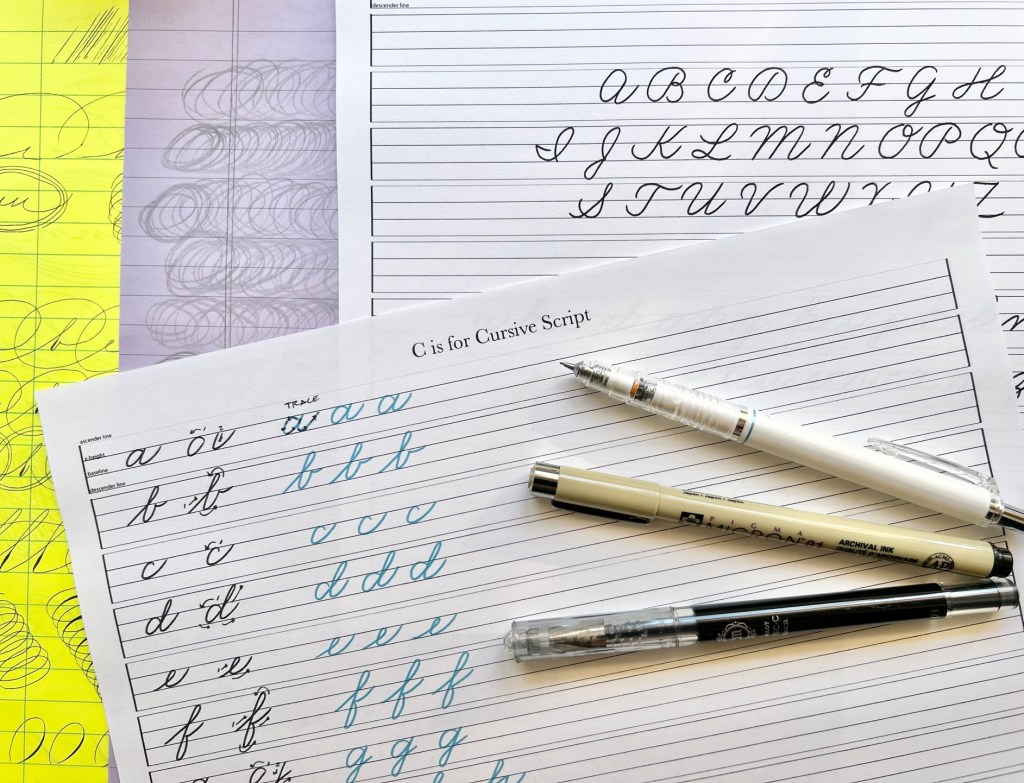 descender line
A B C D E F G H
I J K L M N O P Q
S T U V W X Y Z
C is for Cursive Script
TRACE
ascender line
x height
baseline
descender line
a a a a
b b b b b
c c c c c
d d d d d
e e e e e
f f f f f
g g g
h
PIGMA
MICRON 01
ARCHIVAL INK
QUALITÉ D'ARCHIVES